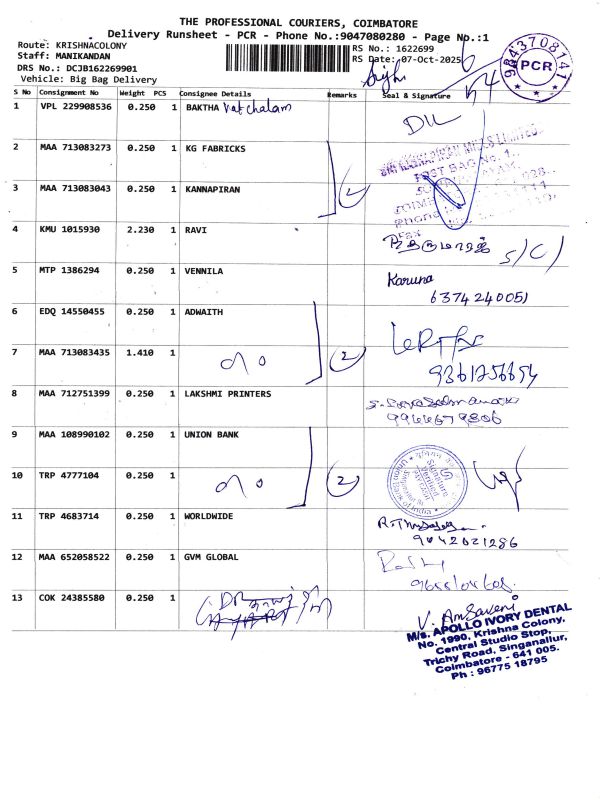 THE PROFESSIONAL COURIERS, COIMBATORE
Delivery Runsheet - PCR - Phone No.:9047080280 - Page No.:1
Route: KRISHNACOLONY
Staff: MANIKANDAN
DRS No.: DCJB162269901
Vehicle: Big Bag Delivery
RS No.: 1622699
RS Date: 07-Oct-2025
9843708141
PCR
S No Consignment No Weight PCS Consignee Details Remarks Seal & Signature
1 VPL 229908536 0.250 1 BAKTHA Vatchalam
2 MAA 713083273 0.250 1 KG FABRICKS
POST BAG No. 1,
3 MAA 713083043 0.250 1 KANNAPIRAN 2
4 KMU 1015930 2.230 1 RAVI
5 MTP 1386294 0.250 1 VENNILA Karuna
6374240051
6 EDQ 14550455 0.250 1 ADWAITH
7 MAA 713083435 1.410 1 2
9361256654
8 MAA 712751399 0.250 1 LAKSHMI PRINTERS
9944679806
9 MAA 108990102 0.250 1 UNION BANK
10 TRP 4777104 0.250 1 2
11 TRP 4683714 0.250 1 WORLDWIDE
9042021286
12 MAA 652058522 0.250 1 GVM GLOBAL
13 COK 24385580 0.250 1
M/s. APOLLO IVORY DENTAL
No. 1990, Krishna Colony,
Central Studio Stop,
Trichy Road, Singanallur,
Coimbatore - 641 005.
Ph : 96775 18795